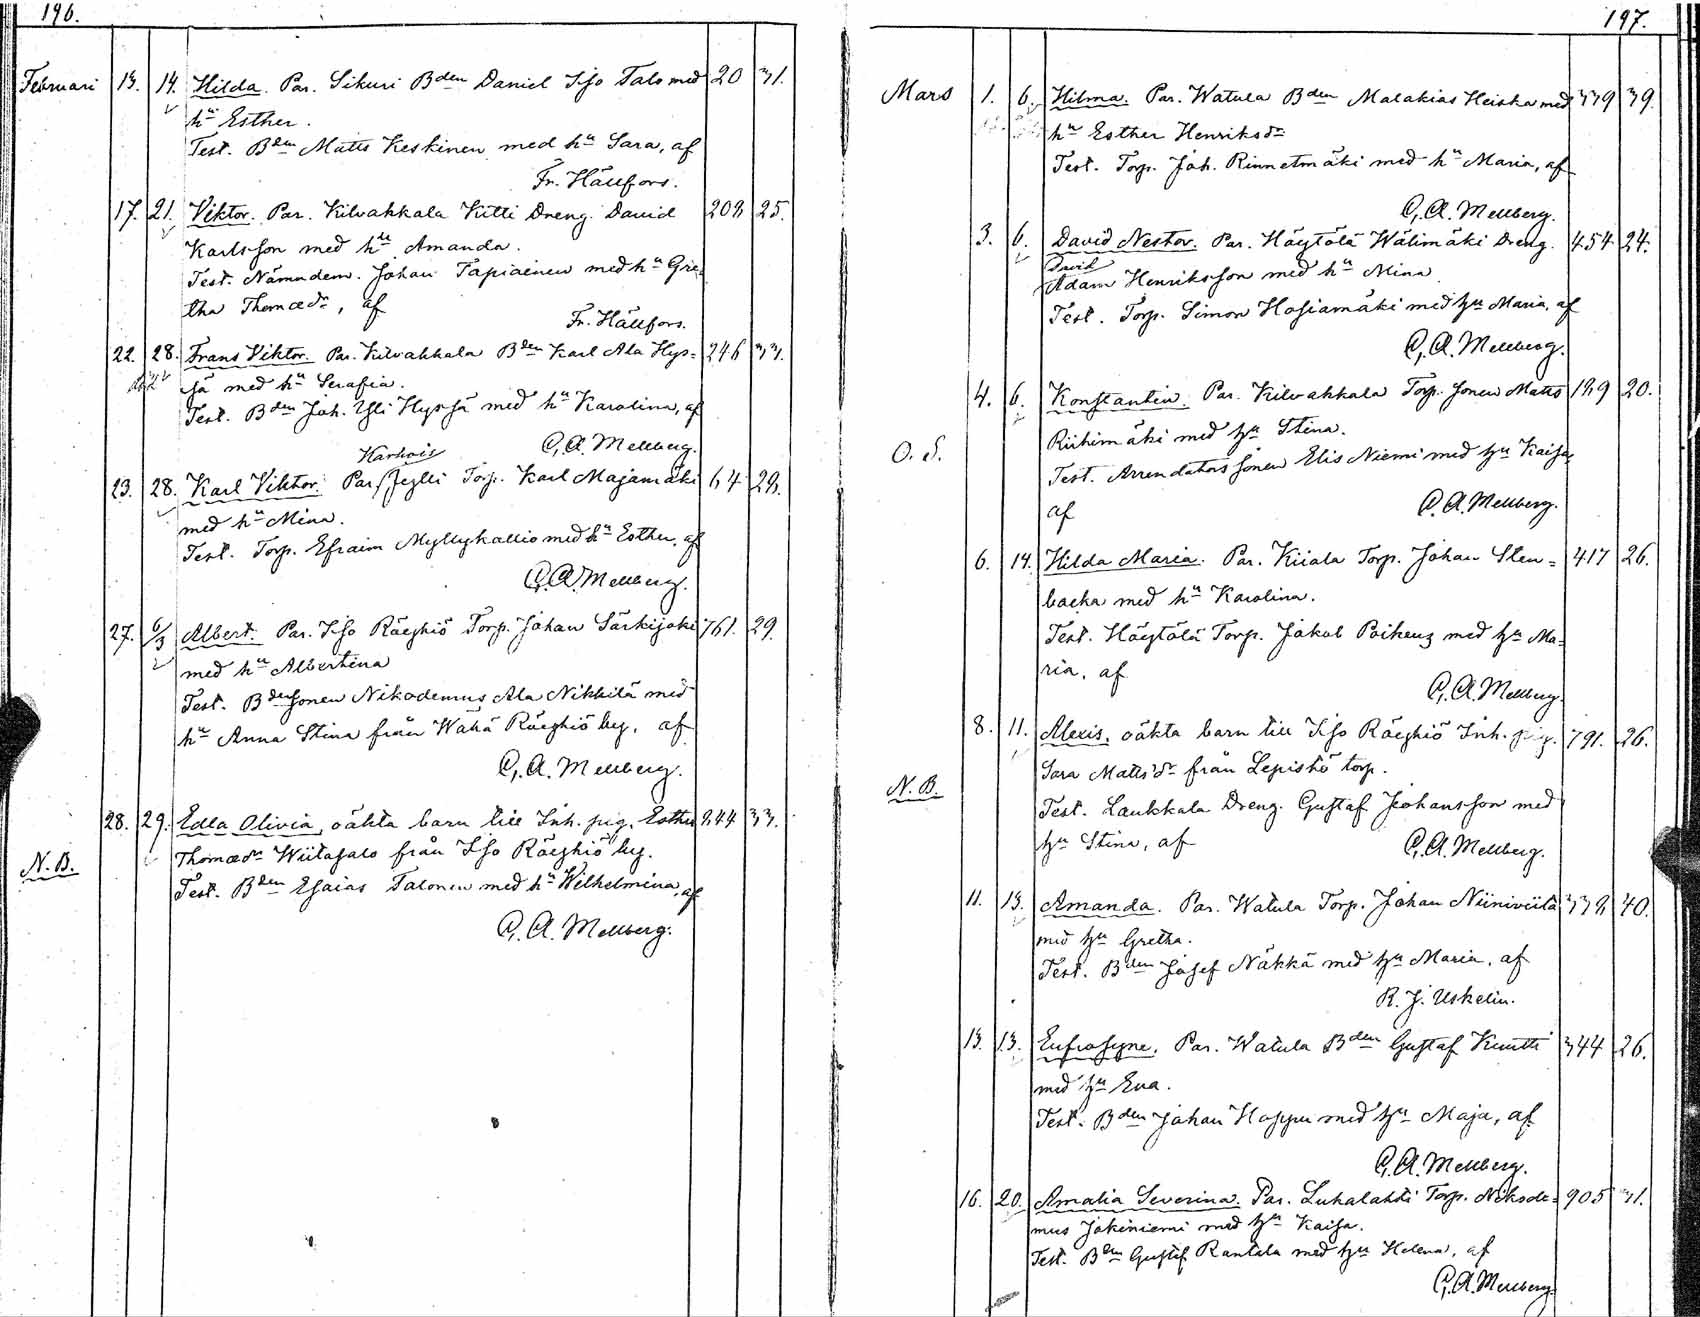 196.
Februari 13. 14. Hilda. Par. Sikuri Bden Daniel Iso Talo med 20 31.
hu Esther.
Test. Bden Matts Keskinen med hu Sara, af
Fr. Hällfors.
17. 21. Viktor. Par. Kilvakkala Kitti Dreng. David 208 25.
Karlsson med hu Amanda.
Test. Nämndem. Johan Tapiainen med hu Gre-
tha Thomædr, af
Fr. Hällfors.
22. 28. Frans Viktor. Par. Kilvakkala Bden Karl Ala Hys= 246 33.
sä med hu Serafia.
Test. Bden Joh. Yli Hyssä med hu Karolina, af
C. A. Mellberg.
Karhois
23. 28. Karl Viktor. Par. Jylli Torp. Karl Majamäki 64 28.
med hu Mina.
Test. Torp. Efraim Myllykallio med hu Esther, af
C. A. Mellberg.
27. 6/3 Albert. Par. Iso Röyhiö Torp. Johan Särkijoki 761. 29.
med hu Albertina
Test. Bdesonen Nikodemus Ala Nikkilä med
hu Anna Stina från Wähä Röyhiö by, af
C. A. Mellberg.
28. 29. Edla Olivia, oäkta barn till Inh. pig. Esther 844 33.
Thomædr Wiitasalo från Iso Röyhiö by.
N. B.
Test. Bden Esaias Talonen med hu Wilhelmina, af
C. A. Mellberg.
197.
Mars 1. 6. Hilma. Par. Watula Bden Malakias Heiska med 339 39.
hu Esther Henriksdr
Test. Torp. Joh. Rinnetmäki med hu Maria, af
C. A. Mellberg.
3. 6. David Nestor. Par. Höytölä Wälimäki Dreng. 454 24.
David
Adam Henriksson med hu Mina
Test. Torp. Simon Hosiamäki med hu Maria, af
C. A. Mellberg.
4. 6. Konstantin. Par. Kilvakkala Torp. sonen Matts 189 20.
Riihimäki med hu Stina.
O. S.
Test. Arrendators sonen Elis Niemi med hu Kaisa
af
C. A. Mellberg.
6. 14. Hilda Maria. Par. Kiiala Torp. Johan Sten= 417 26.
backa med hu Karolina.
Test. Höytölä Torp. Jakob Poikeus med hu Ma=
ria, af
C. A. Mellberg.
8. 11. Alexis, oäkta barn till Iso Röyhiö Inh. pig. 791. 26.
Sara Mattsdr från Lepistö torp.
N. B.
Test. Laukkala Dreng. Gustaf Johansson med
hu Stina, af
C. A. Mellberg.
11. 13. Amanda. Par. Watula Torp. Johan Niiniviita 338 40.
med hu Gretha.
Test. Bden Josef Näkkä med hu Maria, af
R. J. Uskelin.
13. 13. Eufrosyne. Par. Watula Bden Gustaf Knutti 344 26.
med hu Eva.
Test. Bden Johan Hoppu med hu Maja, af
C. A. Mellberg.
16. 20. Amalia Severina. Par. Luhalahti Torp. Nikode= 905 31.
mus Jokiniemi med hu Kaisa.
Test. Bden Gustaf Rantala med hu Helena, af
C. A. Mellberg.